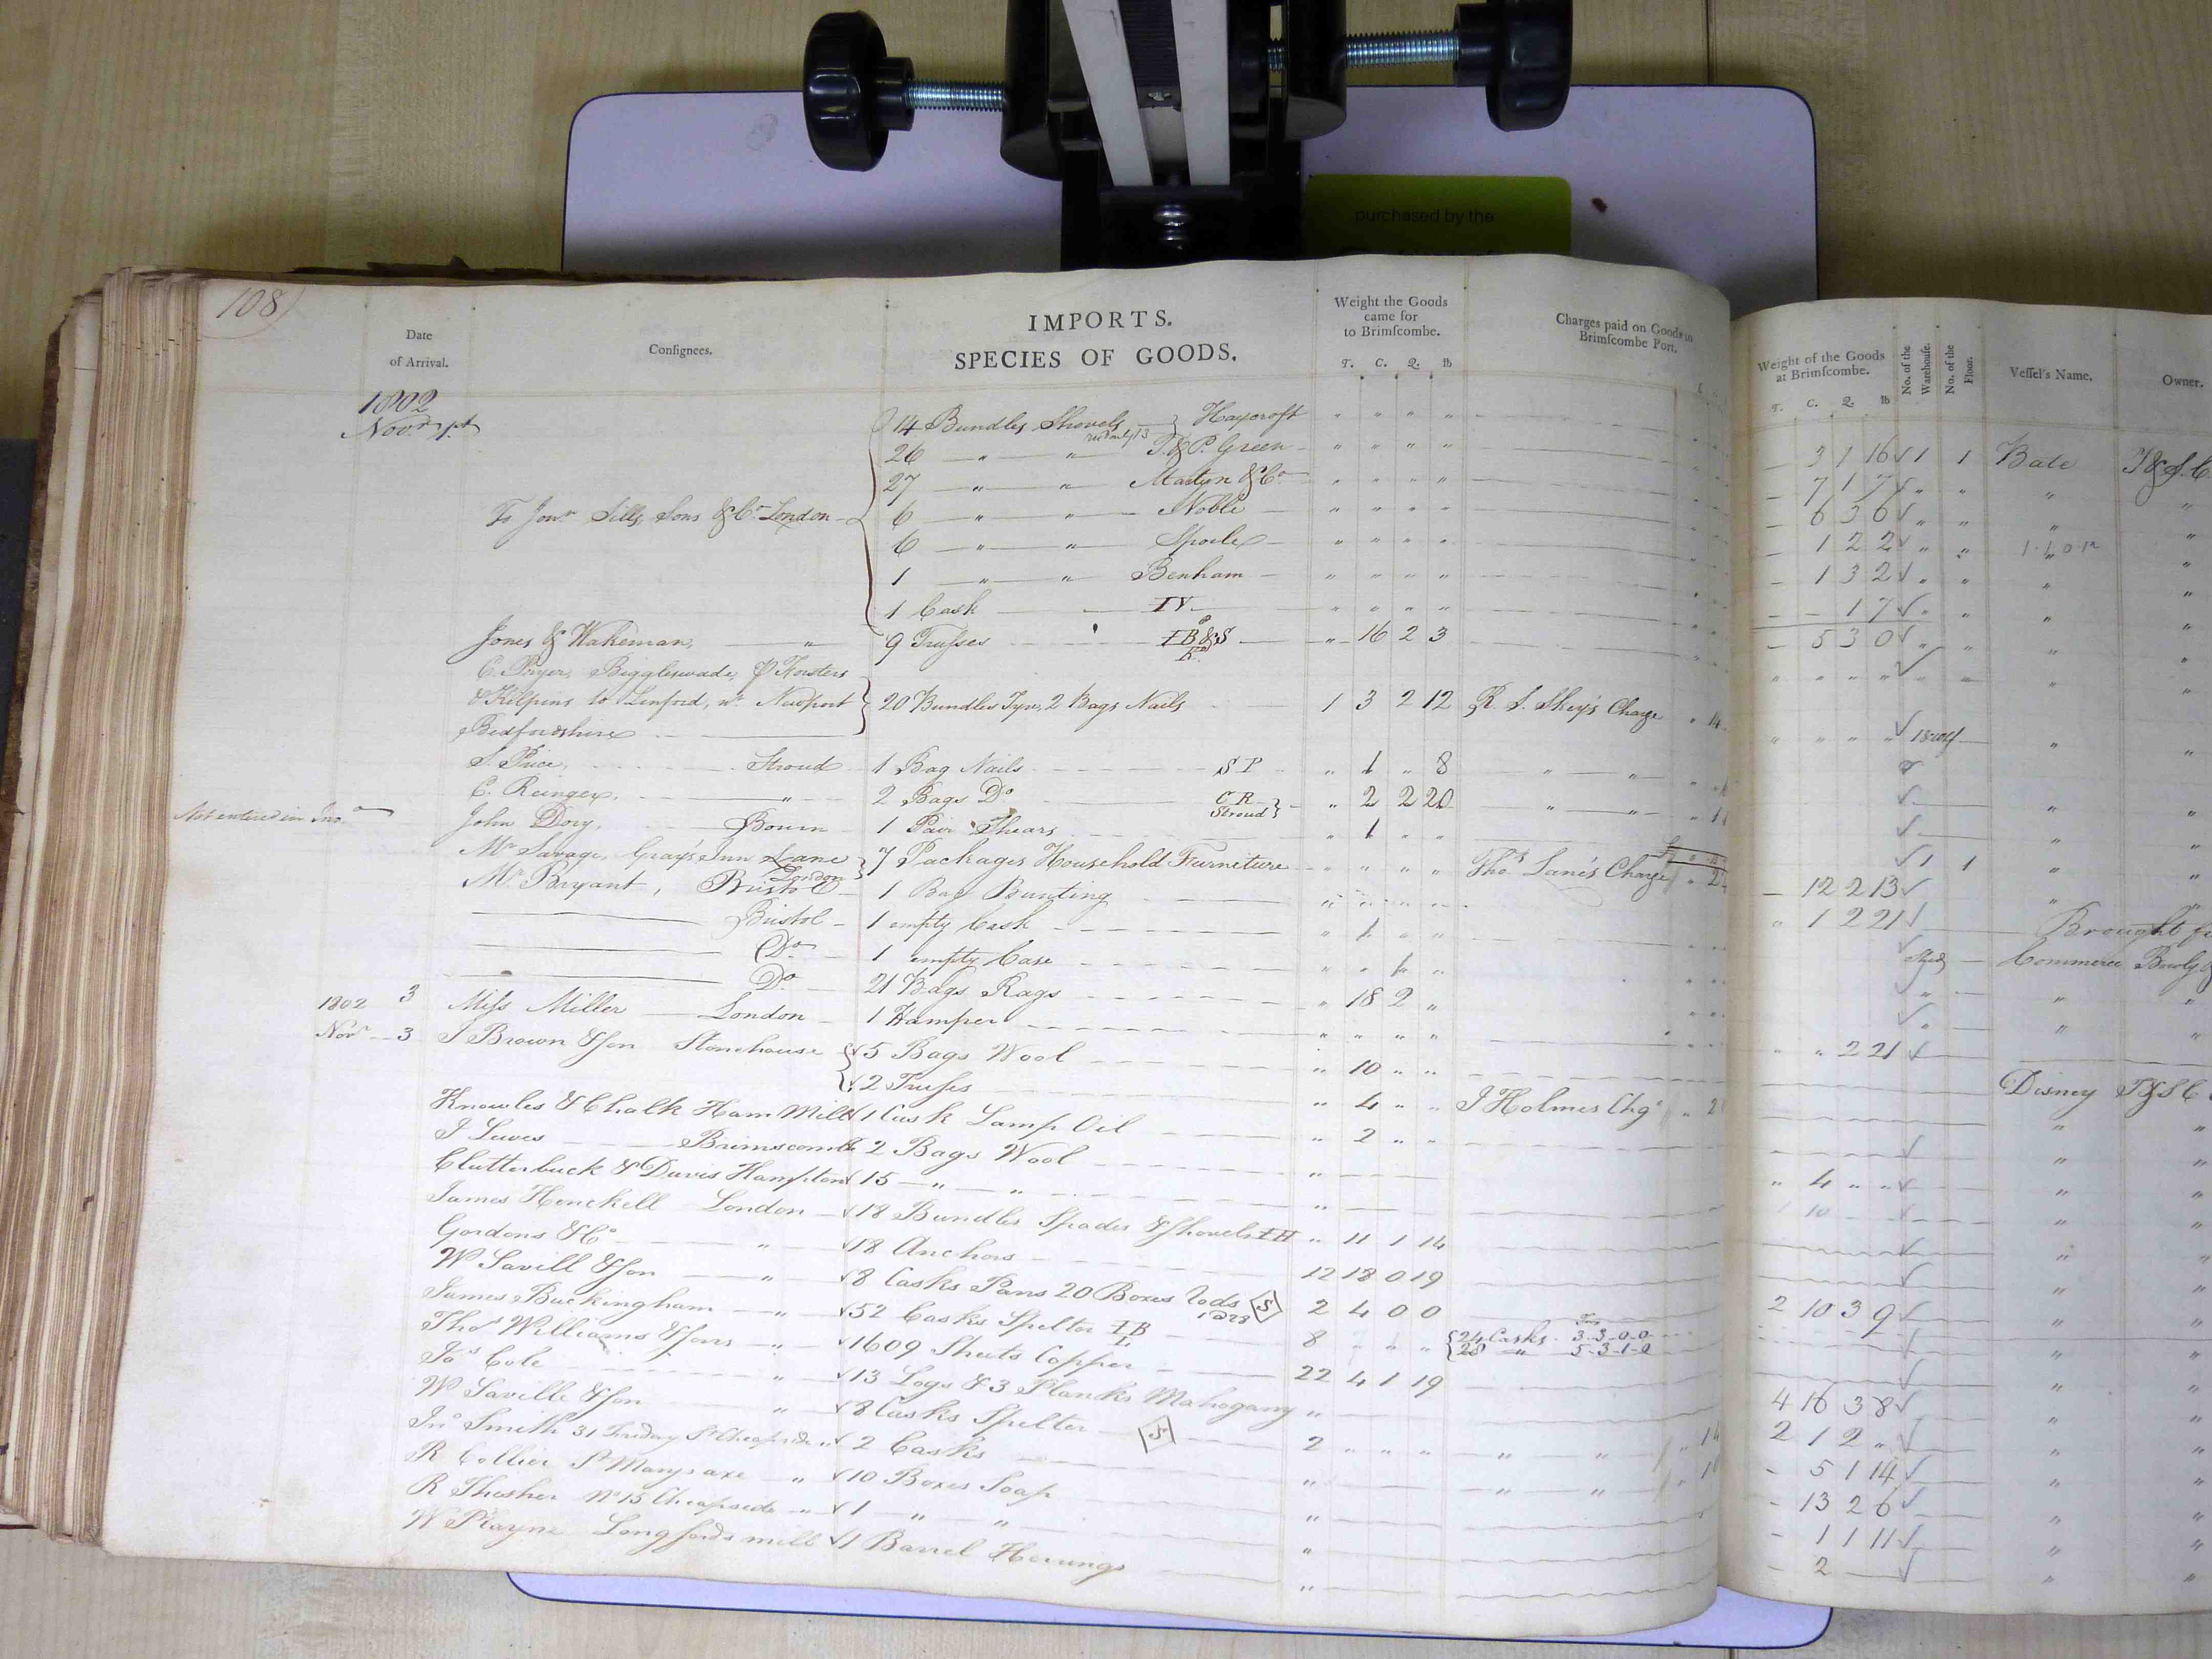 purchased by the
108
Date of Arrival.
Consignees.
IMPORTS.
SPECIES OF GOODS.
Weight the Goods came for to Brimscombe.
T. C. Q. lb
Charges paid on Goods to Brimscombe Port.
Weight of the Goods at Brimscombe.
T. C. Q. lb
No. of the Warehouse.
No. of the Floor.
Vessel's Name.
Owner.
1802
Novr 1st
To Jonn Sills, Sons & Co London
14 Bundles Shovels Haycroft
26 " " T. & P. Green
27 " " Martyn & Co
6 " " Noble
6 " "
1 " " Benham
1 Cask IV
Jones & Wakeman, " 9 Trusses IB&S " 16 2 3
C. Pryer, Biggleswade,
& Kilpins to Linford, nr Newport 20 Bundles 2 Bags Nails 1 3 2 12 R. S. Skey's Charge " 14
Bedfordshire
S. Price, Stroud 1 Bag Nails SP " 1 " 8 " "
C. Reinger, " 2 Bags Do CR Stroud " 2 2 20 " "
Not entered in
John Dory, Bourn 1 Pair Shears " 1 " "
Mr Savage, Gray's Inn Lane London 7 Packages Household Furniture " " " " Thos Lane's Charge
Mr Bryant, Bristol 1 Bag Bunting
Bristol 1 empty Cask " 1 " "
Do 1 empty Case " " 1 "
Do 21 Bags Rags " 18 2 "
1802 3 Miss Miller London 1 Hamper " " " "
Novr 3 J Brown & Son Stonehouse 5 Bags Wool " 10 " "
2 Trusses " 4 " " J Holmes Chge
Knowles & Chalk Ham Mill 1 Cask Lamp Oil " 2 " "
J Lewes Brimscomb 2 Bags Wool "
Clutterbuck & Davis Hampton 15 " " "
James Henckell London 18 Bundles Spades & Shovels IH " 11 1 14
Gordons & Co " 18 Anchors 12 18 0 19
W Savill & Son " 8 Casks Pans 20 Boxes S 2 4 0 0
James Buckingham " 52 Casks Spelter IB L 8 " " " 24 Casks 3-3-0-0
28 " 5-3-1-0
Thos Williams & Sons " 1609 Sheets Copper 22 4 1 19
Jas Cole " 13 Logs & 3 Planks Mahogany "
W Saville & Son " 8 Casks Spelter S 2 " " " " "
Jno Smith 31 Friday St Cheapside " 2 Casks " " "
R Collier St Marys axe " 10 Boxes Soap "
R Thesher No 15 Cheapside " 1 " " "
W Playne Longfords mill 1 Barrel Herrings "
3 1 16 1 1 Bate
7 1 7 " " "
6 3 6 " " "
1 2 2 " "
1 3 2 " " "
1 7 " " "
5 3 0 " " "
12 2 13
1 2 21
Brought
Shed Commerce
2 21
Disney
4 " "
10
2 10 3 9
4 16 3 8
2 1 2 "
5 1 14
13 2 6
1 1 11
2